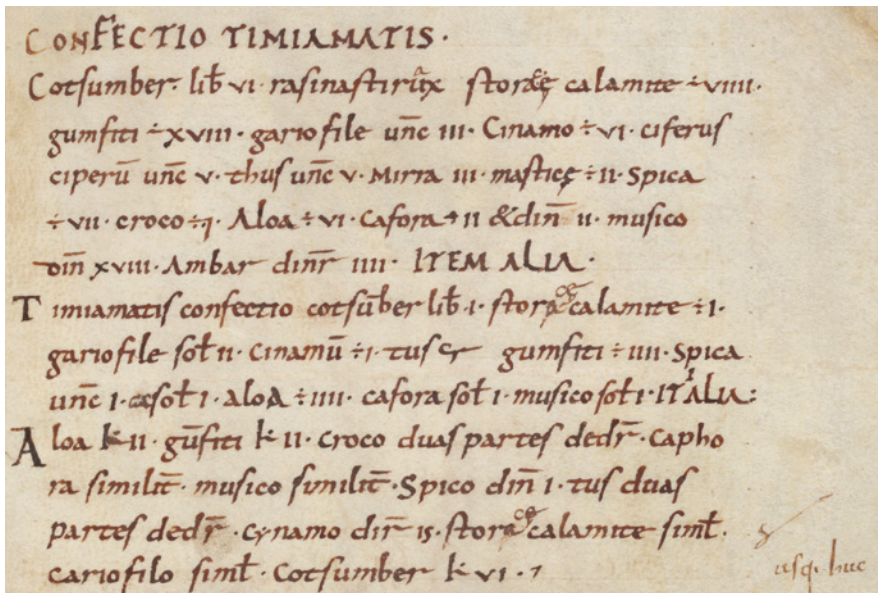 CONFECTIO TIMIAMATIS·
Cotsumber· lib̄ vi· rasinastirūix storacę calamite ÷ viiii·
gumfiti ÷ xviii· gariofile unc̄ iii· Cinamo ÷ vi· ciferus
ciperū unc̄ v· thus unc̄ v· Mirra iii· masticę ÷ ii· Spica
÷ vii· croco ÷ i· Aloa ÷ vi· Cafora ÷ ii & din̄ ii· musico
din̄ xviii· Ambar dinr̄ iiii· ITEM ALIA·
Timiamatis confectio cotsūber lib̄ i· storace calamite ÷ i·
gariofile sol̄ ii· Cinamū ÷ i· tus gumfiti ÷ iiii· Spica
unc̄ i· sol̄ i· aloa ÷ iiii· cafora sol̄ i· musico sol̄ i· IT ALIA:
Aloa k ii· gūfiti k ii· Croco duas partes de dr̄· Capho
ra similit̄· musico similit̄· Spico din̄ i· tus duas
partes de dr̄· Cynamo dir̄ is· storace calamite siml̄·
cariofilo siml̄· Cotsumber k vi·
usq· huc